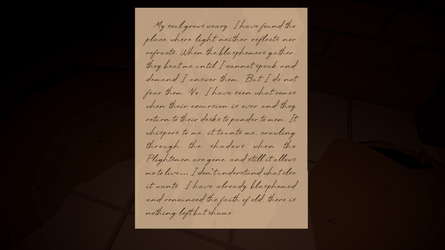 My soul grows weary. I have found the
place where light neither reflects nor
refracts. When the blasphemers gather,
they beat me until I cannot speak and
demand I answer them. But I do not
fear them. No. I have seen what comes
when their excursion is over and they
return to their desks to pander to men. It
whispers to me, it taunts me, crawling
through the shadows when the
Plightmen are gone, and still it allows
me to live... I don't understand what else
it wants. I have already blasphemed
and renounced the faith of old, there is
nothing left but shame.